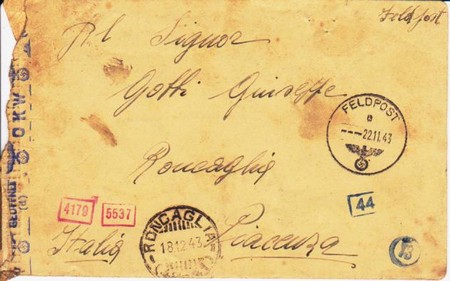 Feldpost
Pel Signor
Gotti Giuseppe
FELDPOST
e
22.11.43
Roncaglia
OKW
GEÖFFNET
(d)
4179
5537
44
RONCAGLIA
18.12.43
Italia
Piacenza